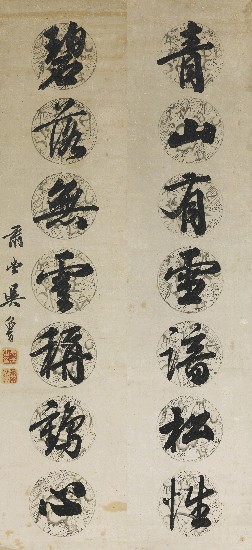 青山有雪諳松性
碧落無雲稱鶴心
肅堂吳魯